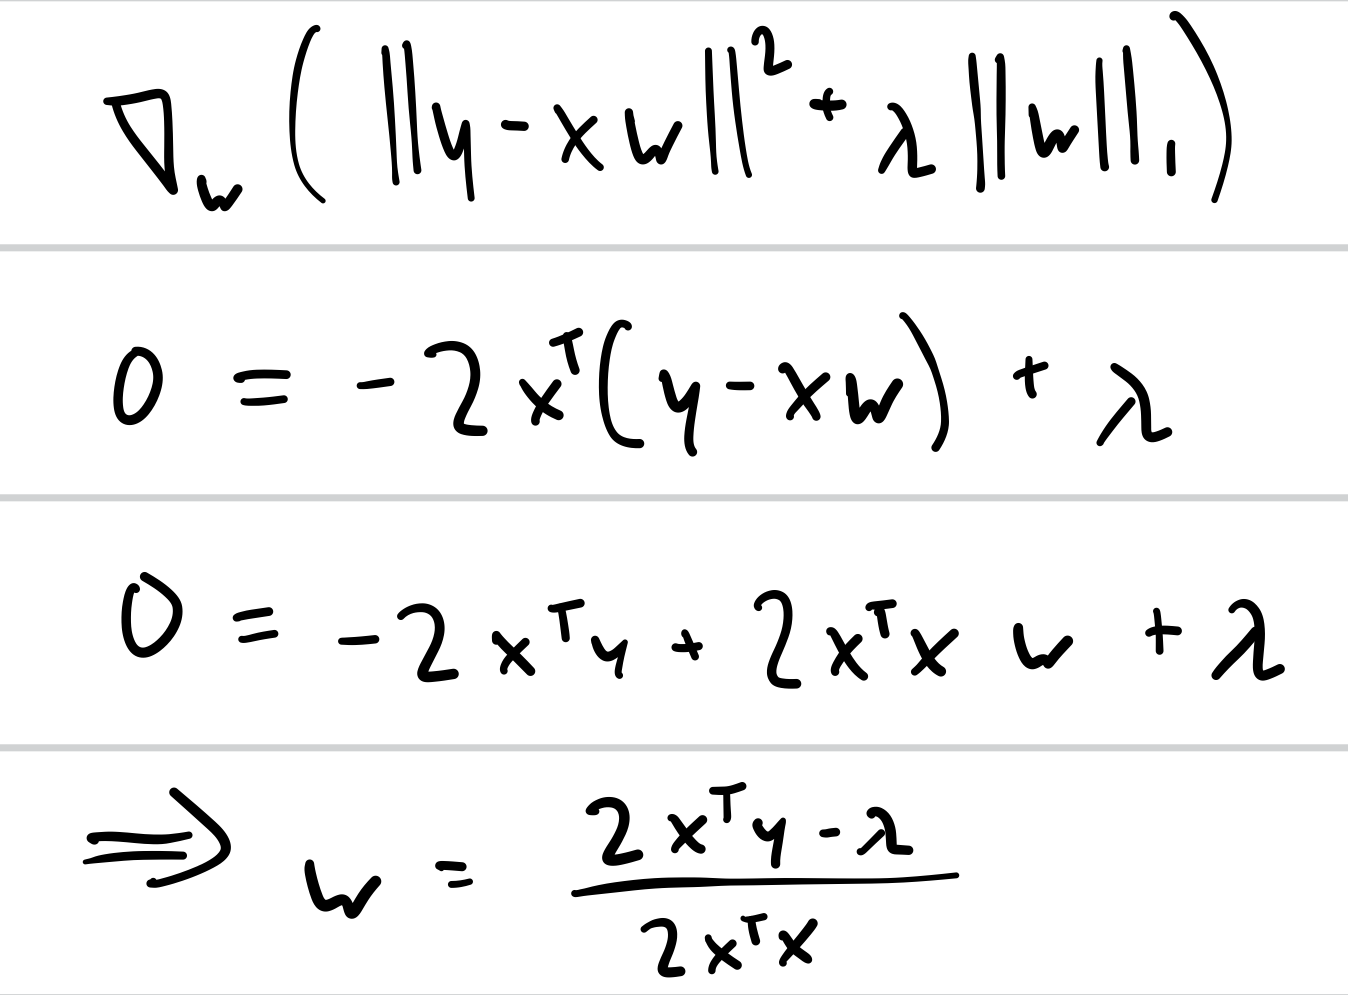 ∇_w ( ||y - xw||^2 + λ ||w||_1 )
0 = -2x^T(y - xw) + λ
0 = -2x^Ty + 2x^Tx w + λ
⇒ w = \frac{2x^Ty - λ}{2x^Tx}